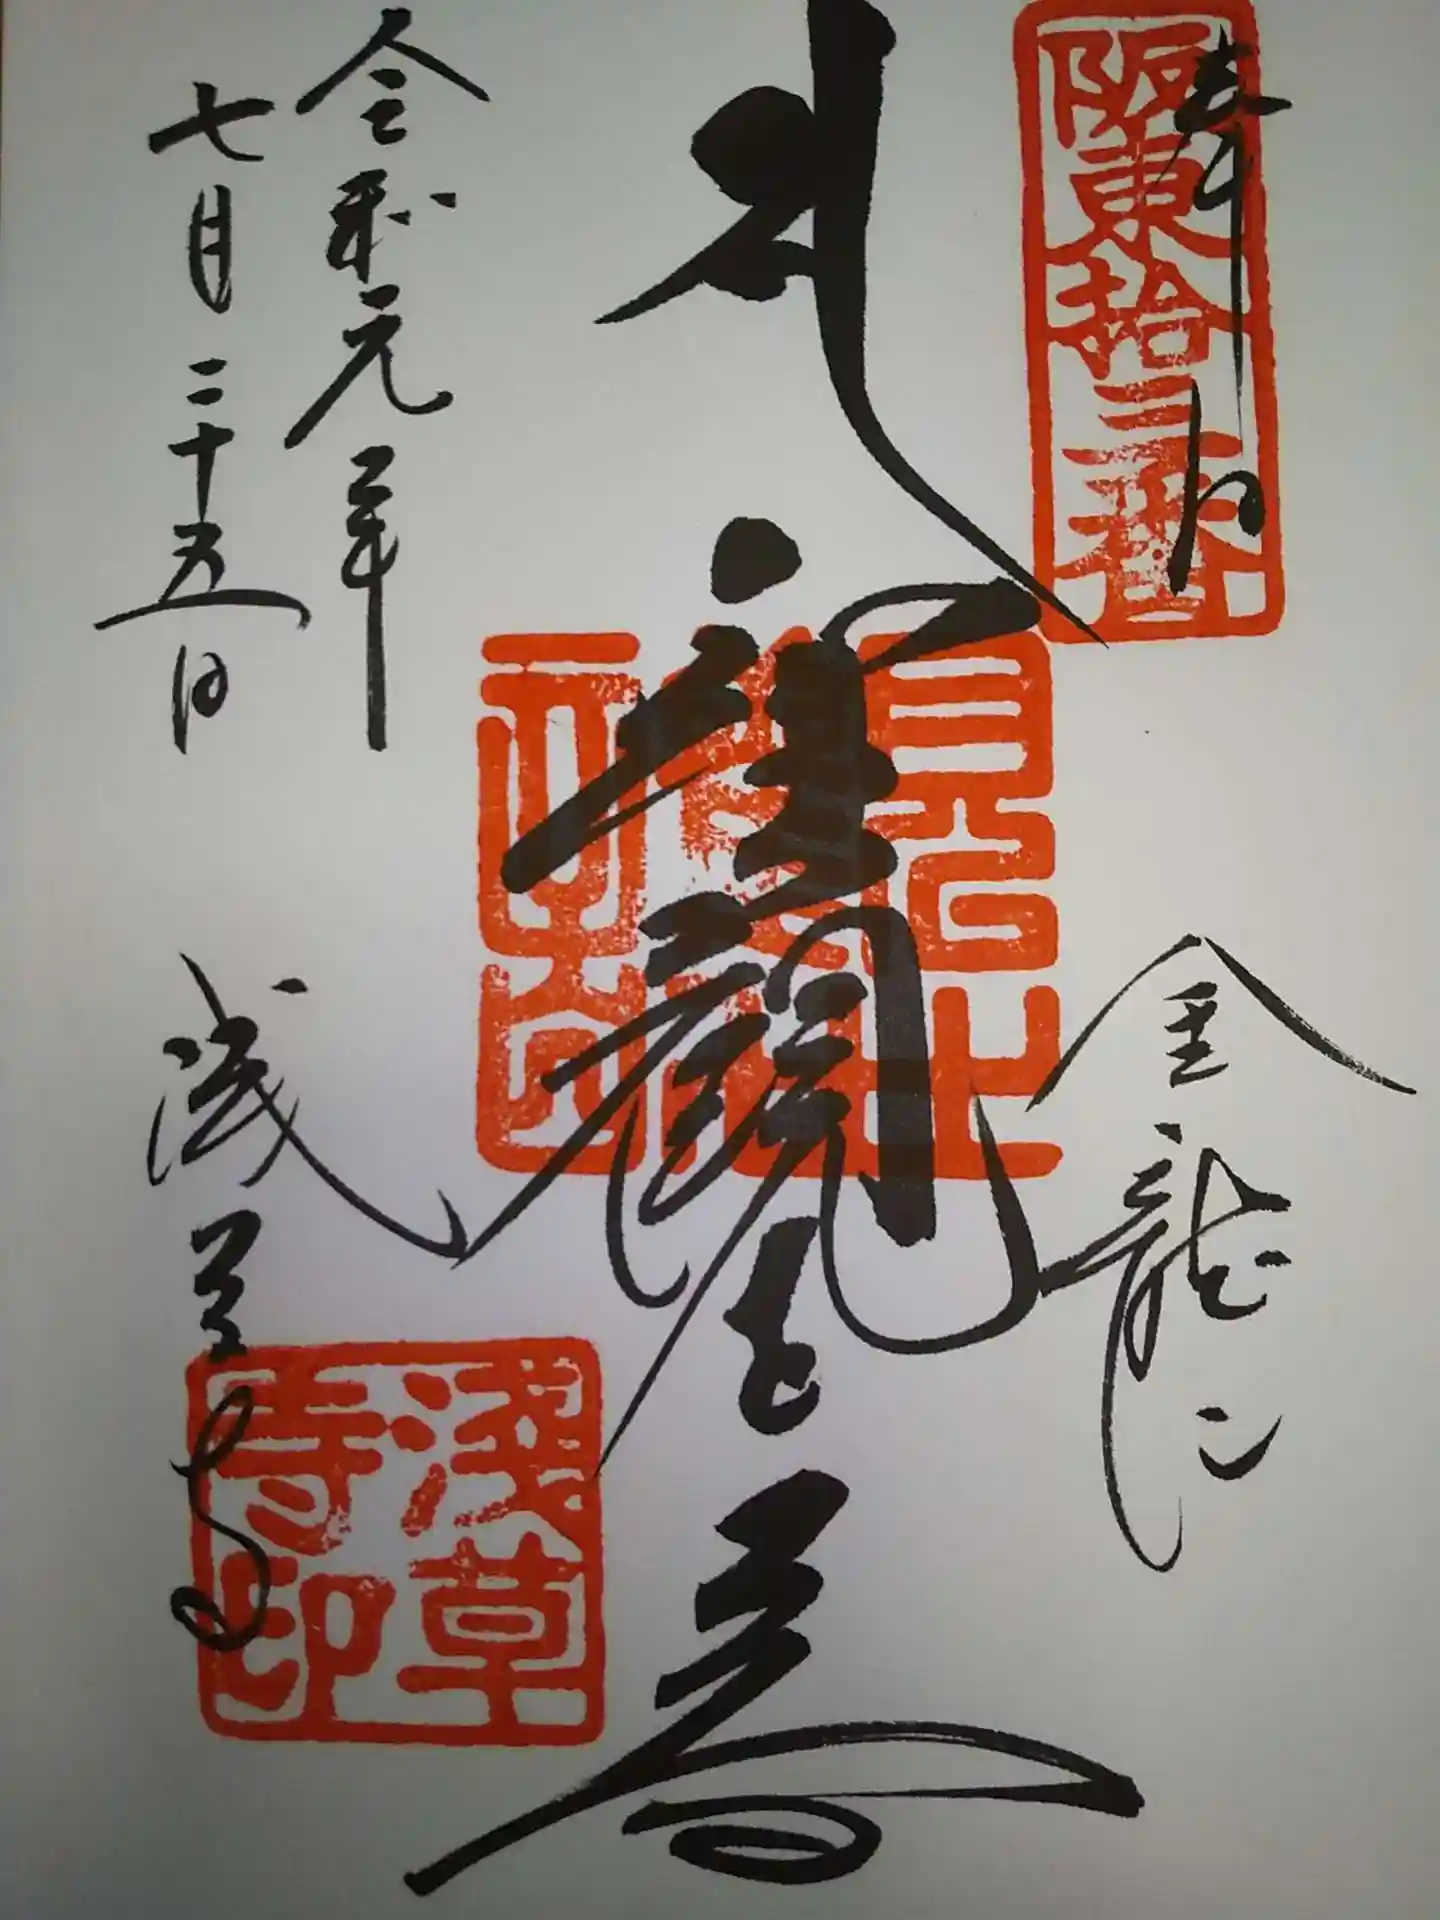 阪東拾三番
奉拝
金龍山
聖観世音
令和元年
七月二十五日
浅草寺
淺草寺印